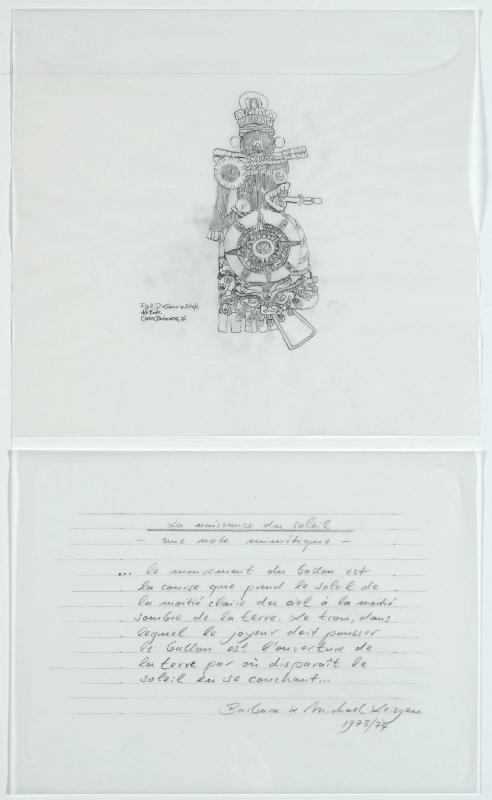 La naissance du soleil
— une note mimétique —
... le mouvement du ballon est
la course que prend le soleil de
la moitié claire du ciel à la moitié
sombre de la terre. Le trou, dans
lequel le joyeur doit pousser
le ballon est l'ouverture de
la terre par où disparaît le
soleil en se couchant...
Barbara & Michael Leisgen
1973/74